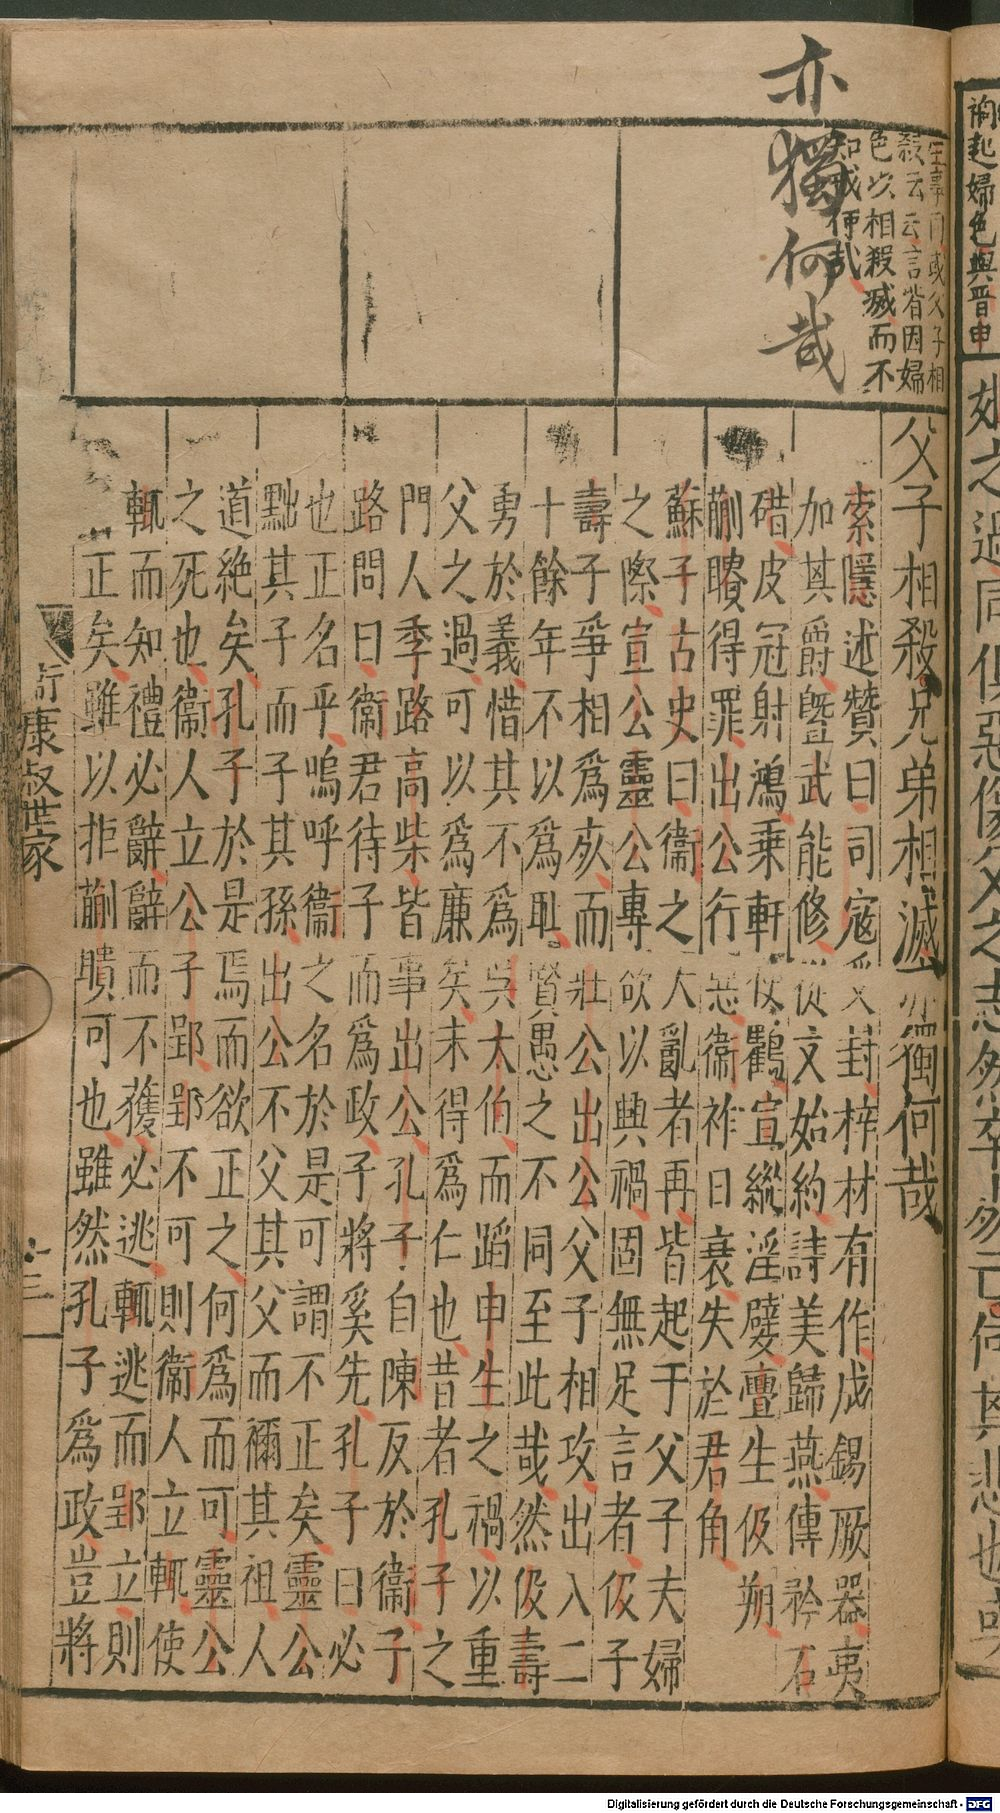 亦獨何哉
色以相殺滅而不
父子相殺兄弟相滅亦獨何哉
索隱述贊曰司寇受封梓材有作成錫厥器夷
加其爵暨武能修從文始約詩美歸燕傳矜石
碏皮冠射鴻乗軒使鶴宣縱淫嬖釁生伋朔
蒯聵得罪出公行惡衞祚日衰失於君角
蘇子古史曰衞之大亂者再皆起于父子夫婦
之際宣公靈公專欲以興禍固無足言者伋子
壽子爭相爲死而壯公出公父子相攻出入二
十餘年不以爲恥賢愚之不同至此哉然伋壽
勇於義惜其不爲吳大伯而蹈申生之禍以重
父之過可以爲廉矣未得爲仁也昔者孔子之
門人季路高柴皆事出公孔子自陳反於衞子
路問曰衞君待子而爲政子將奚先孔子曰必
也正名乎嗚呼衞之名於是可謂不正矣靈公
黜其子而子其孫出公不父其父而禰其祖人
道絶矣孔子於是焉而欲正之何爲而可靈公
之死也衞人立公子郢郢不可則衞人立輒使
輒而知禮必辭辭而不獲必逃輒逃而郢立則
正矣雖以拒蒯聵可也雖然孔子爲政豈將
康叔世家
Digitalisierung gefördert durch die Deutsche Forschungsgemeinschaft - DFG